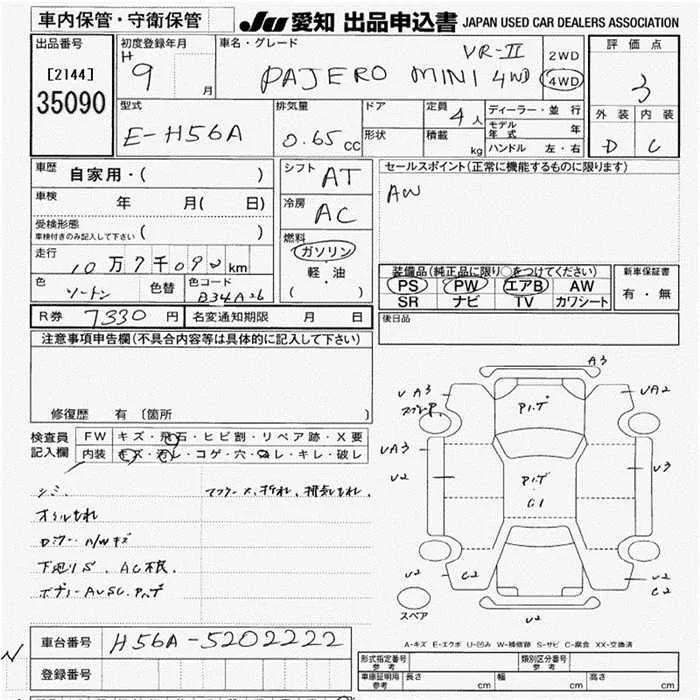 車内保管・守衛保管
JU 愛知 出品申込書 JAPAN USED CAR DEALERS ASSOCIATION
出品番号
[2144]
35090
初度登録年月
H
9 月
車名・グレード
VR-II
PAJERO MINI 4WD
2WD
4WD
評価点
3
外装 内装
D C
型式
E-H56A
排気量
0.65 cc
ドア
形状
定員
4 人
積載 kg
ディーラー・並行
モデル年式 年
ハンドル 左・右
車歴
自家用・( )
車検
年 月( 日)
受検形態
車検付きのみ記入して下さい ( )
走行
10万7千090 km
色
ツートン
色替
色コード
B34A26
シフト
AT
冷房
AC
燃料
ガソリン
軽・油
( )
セールスポイント(正常に機能するものに限ります)
AW
装備品(純正品に限り○をつけてください)
PS PW エアB AW
SR ナビ TV カワシート
新車保証書
有・無
R券 7330 円
名変通知期限 月 日
後日品
注意事項申告欄(不具合内容等は具体的に記入して下さい)
修復歴 有 〔箇所 〕
検査員
記入欄
FW キズ・飛石・ヒビ割・リペア跡・X要
内装 キズ・汚レ・コゲ・穴・スレ・キレ・破レ
シミ、
オイルもれ
A/Wキズ
下廻りS、AC
A3
UA3
UA2
UA3
U2
U3
C1
U2
C2
U2
C2
U2
スペア
A-キズ E-エクボ U-凹み W-補修跡 S-サビ C-腐食 XX-交換済
N
車台番号 H56A-5202222
登録番号
形式指定番号
参考
類別区分番号
参考
車庫証明用
参考
長さ cm
幅 cm
高さ cm